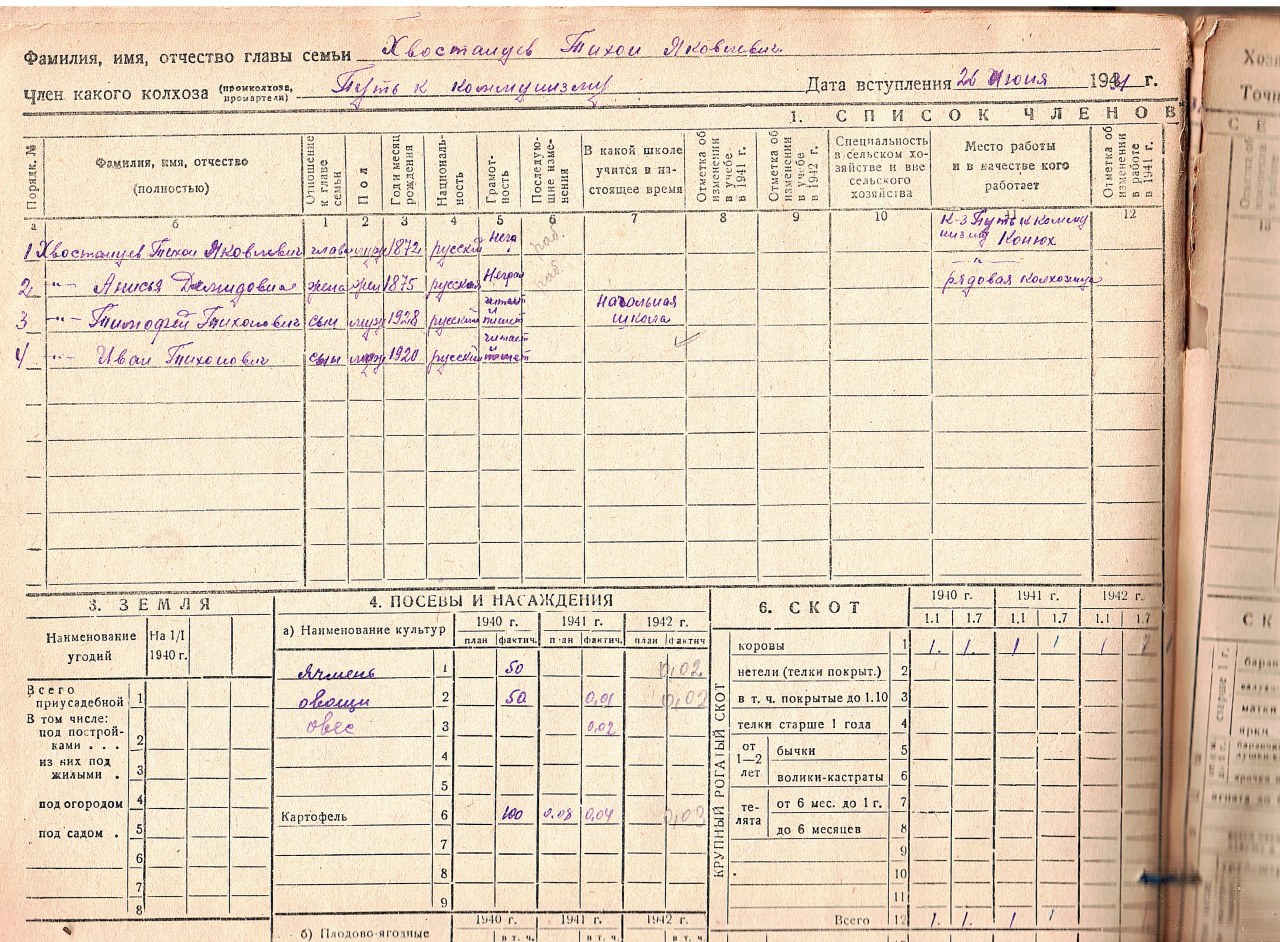 Фамилия, имя, отчество главы семьи Хвостанцев Тихон Яковлевич
Член какого колхоза (промколхоза, промартели) Путь к коммунизму Дата вступления 22 Июня 1931 г.
1. СПИСОК ЧЛЕНОВ
Порядк. №
Фамилия, имя, отчество (полностью)
Отношение к главе семьи
Пол
Год и месяц рождения
Национальность
Грамотность
Последующие изменения
В какой школе учится в настоящее время
Отметка об изменении в учебе в 1941 г.
Отметка об изменении в учебе в 1942 г.
Специальность в сельском хозяйстве и вне сельского хозяйства
Место работы и в качестве кого работает
Отметка об изменении в работе в 1941 г.
а б 1 2 3 4 5 6 7 8 9 10 11 12
1 Хвостанцев Тихон Яковлевич глава муж 1872 русский Негр. раб. к-з Путь к коммунизму Конюх
2 -"- Анисья Демидовна жена жен 1875 русская Неграм раб. -"- рядовая колхозница
3 -"- Тимофей Тихонович сын муж 1928 русский читает и пишет начальная школа
4 -"- Иван Тихонович сын муж 1920 русский читает и пишет
3. ЗЕМЛЯ
Наименование угодий На 1/I 1940 г.
Всего приусадебной 1
В том числе:
под постройками . . . 2
из них под жилыми . 3
под огородом 4
под садом . 5
6
7
8
4. ПОСЕВЫ И НАСАЖДЕНИЯ
а) Наименование культур 1940 г. 1941 г. 1942 г.
план фактич. план фактич. план фактич
Ячмень 1 50 0,02
овощи 2 50 0,01 0,02
овес 3 0,02
4
5
Картофель 6 100 0.08 0,04 0,03
7
8
9
1940 г. 1941 г. 1942 г.
б) Плодово-ягодные в т. ч. в т. ч.
6. СКОТ
1940 г. 1941 г. 1942 г.
1.1 1.7 1.1 1.7 1.1 1.7
КРУПНЫЙ РОГАТЫЙ СКОТ
коровы 1 1. 1. 1 1 1
нетели (телки покрыт.) 2
в т. ч. покрытые до 1.10 3
телки старше 1 года 4
от 1—2 лет
бычки 5
волики-кастраты 6
телята
от 6 мес. до 1 г. 7
до 6 месяцев 8
9
10
11
Всего 12 1. 1. 1 1